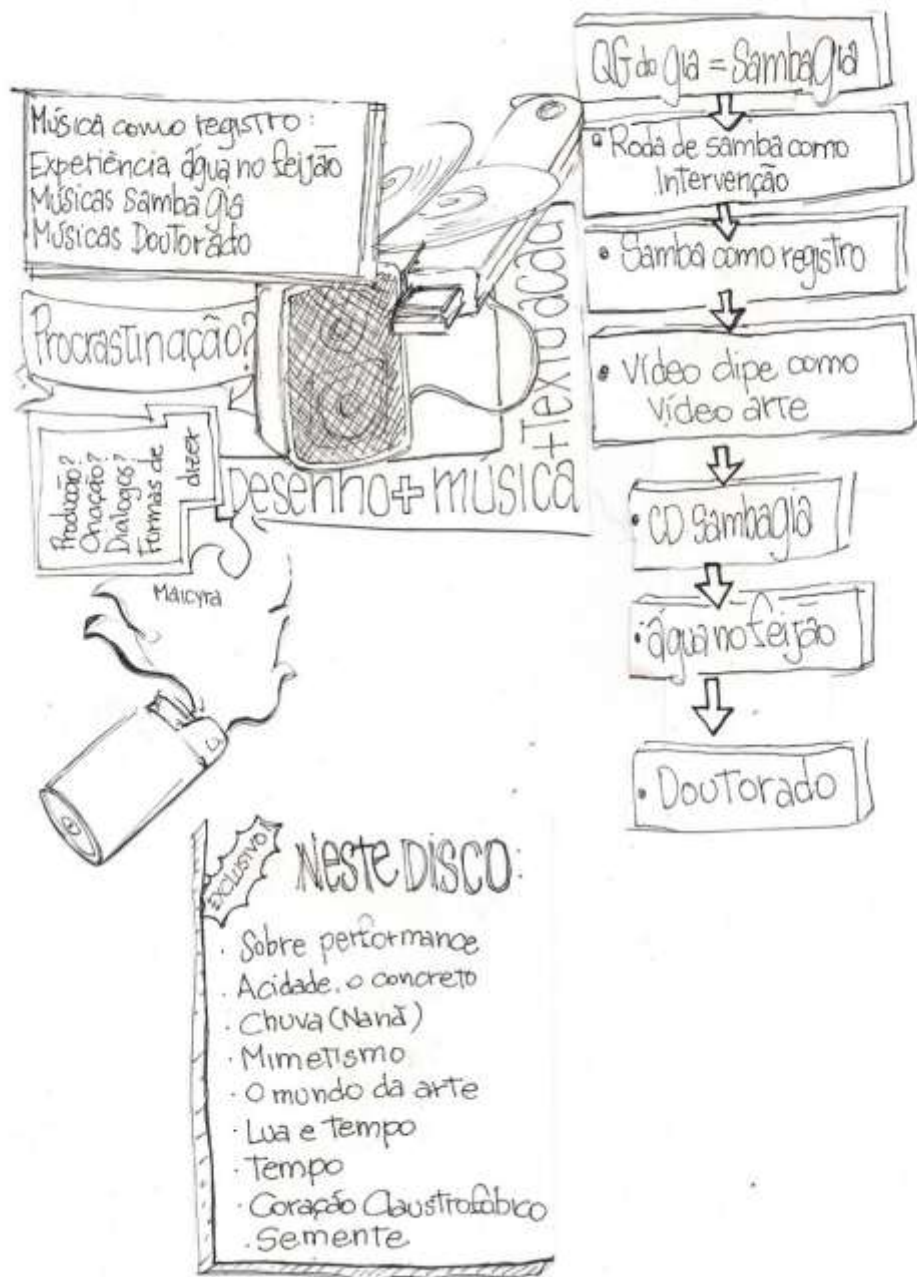 Música como registro:
Experiência água no feijão
Músicas SambaGia
Músicas Doutorado
Procrastinação?
Produção?
Criação?
Dialogos?
Formas de
dizer
Desenho + música
+ Texto
Maicyra
QG do Gia = SambaGia
• Roda de samba como
Intervenção
• Samba como registro
• Vídeo clipe como
Vídeo arte
• CD SambaGia
• água no feijão
• Doutorado
EXCLUSIVO
NESTE DISCO:
· Sobre performance
· Acidade, o concreto
· Chuva (Nanã)
· Mimetismo
· O mundo da arte
· Lua e Tempo
· Tempo
· Coração Claustrofóbico
· Semente